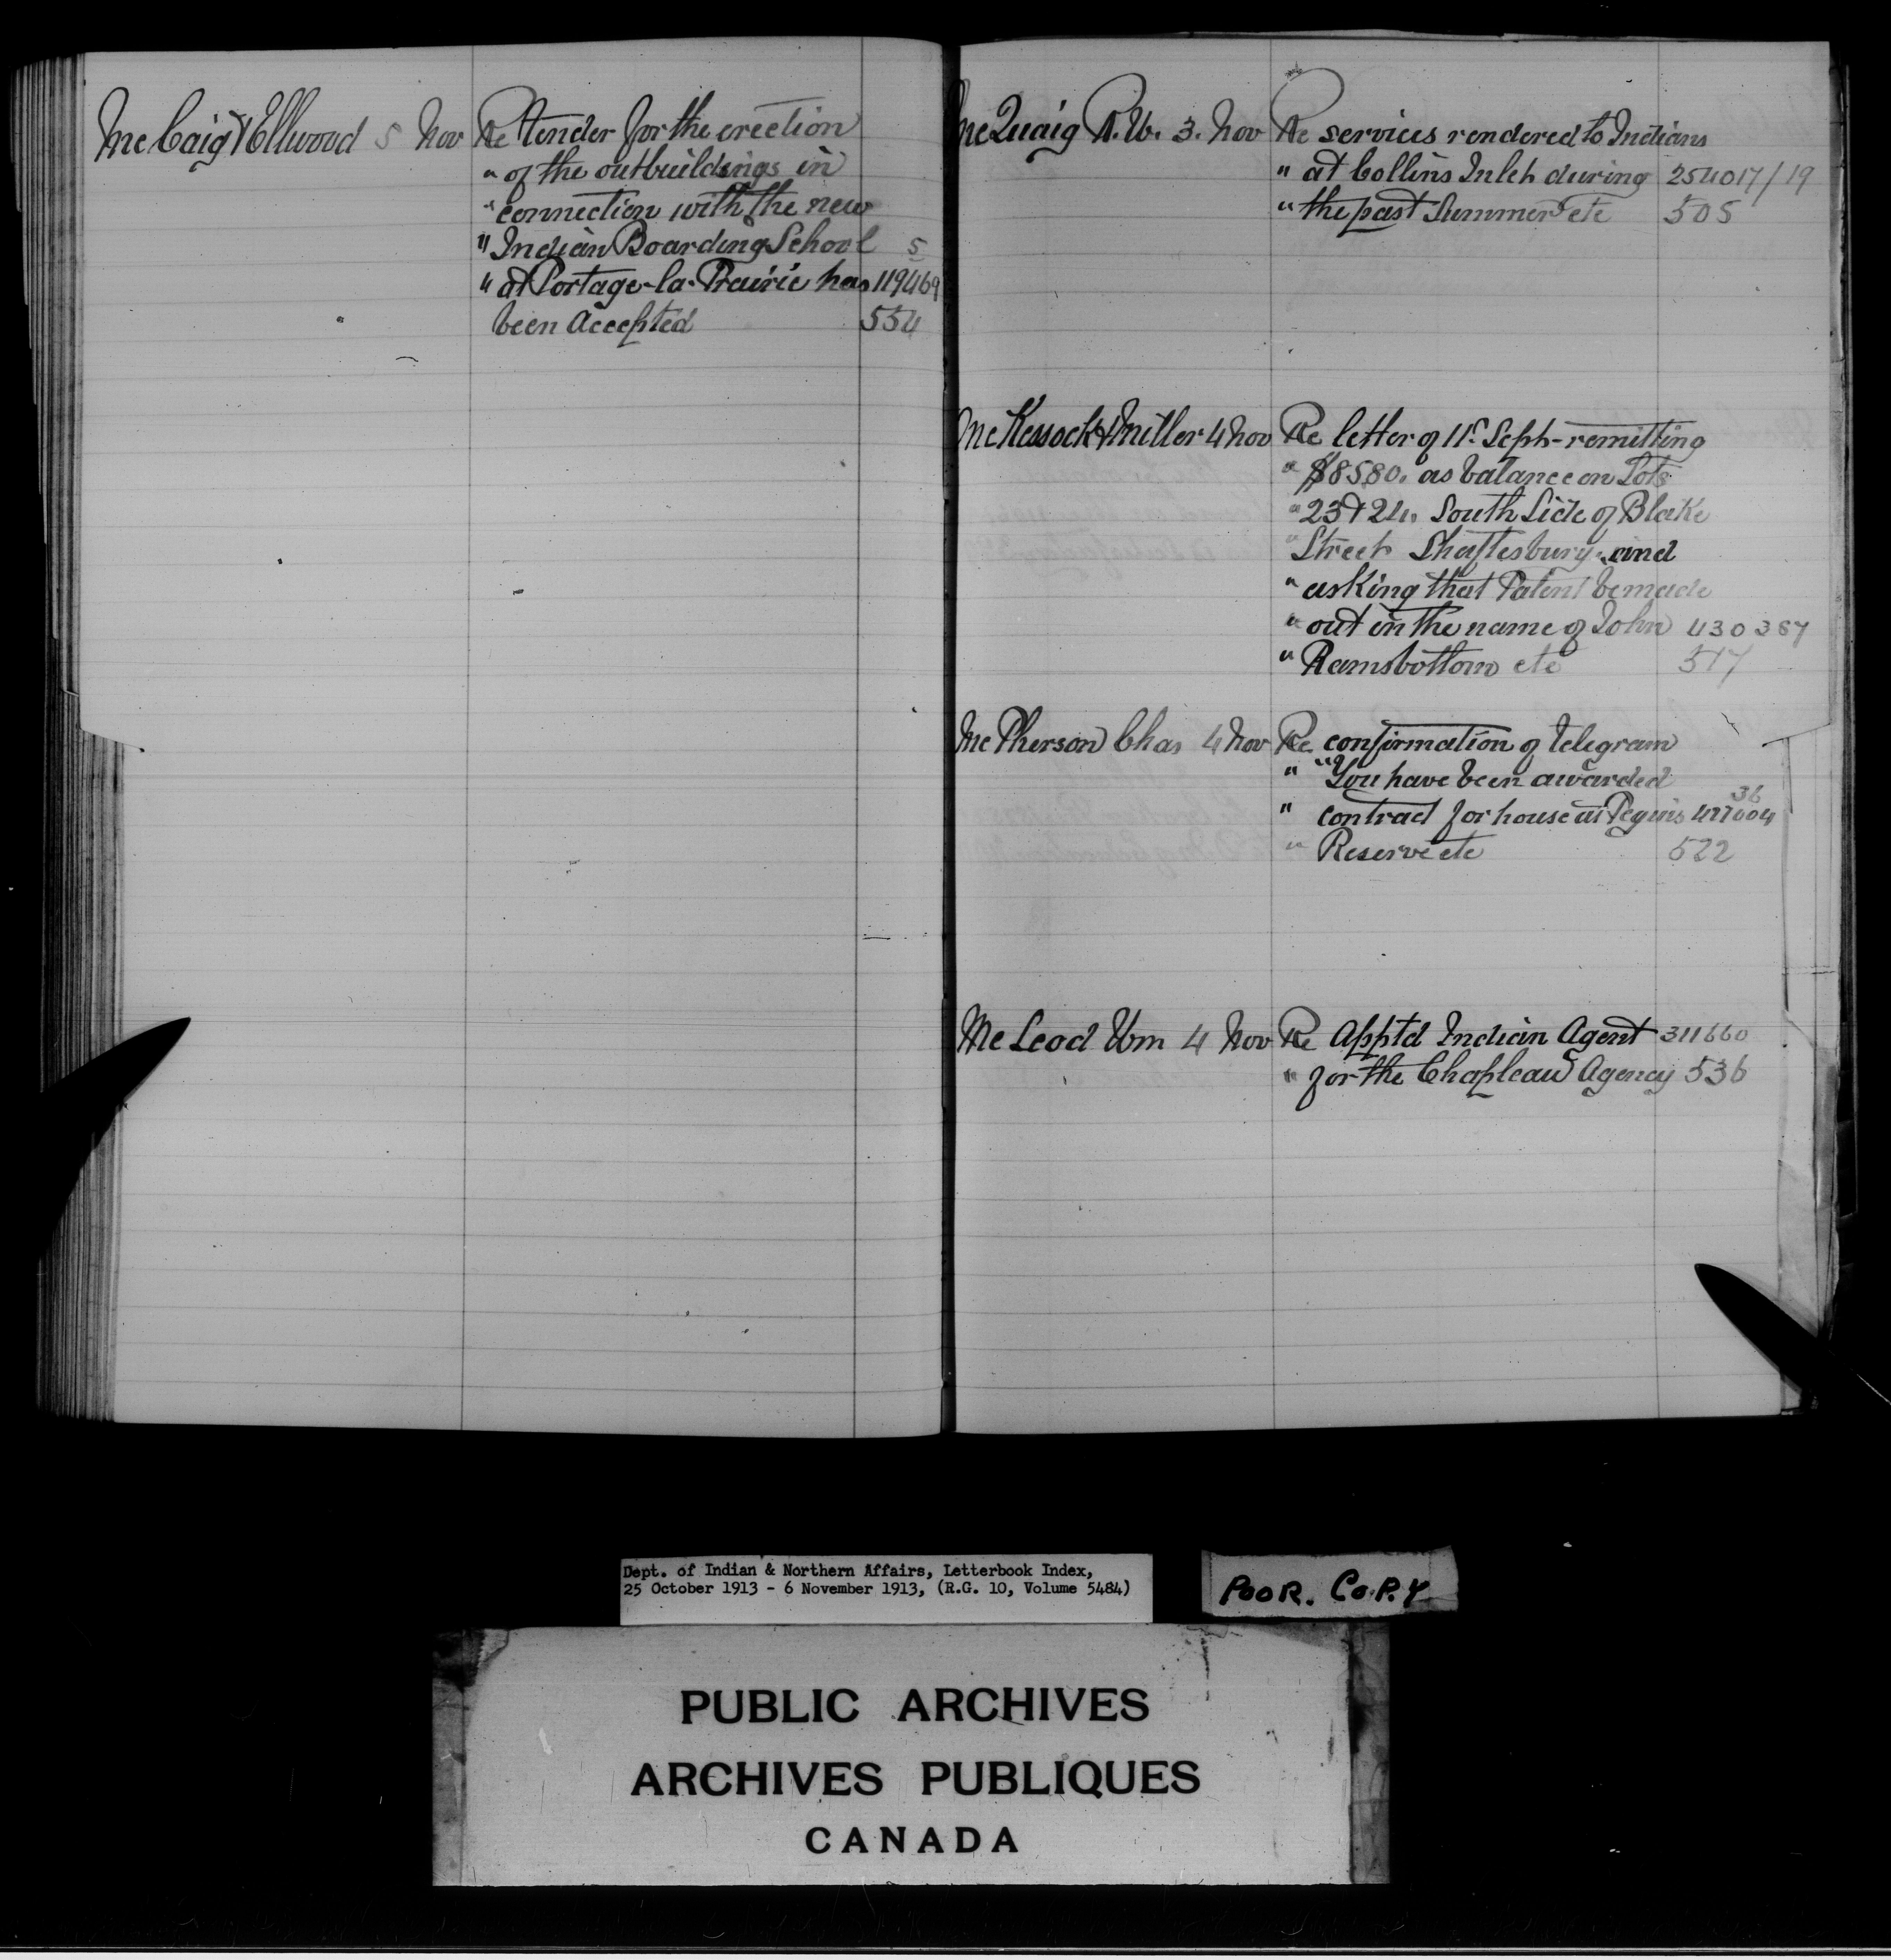 McCaig & Ellwood 5 Nov Re tender for the erection
" of the outbuildings in
" connection with the new
" Indian Boarding School 5
" at Portage-la-Prairie has 119469
been accepted 554
McQuaig R.W. 3. Nov Re services rendered to Indians
" at Collins Inlet during 254017/19
" the past Summer etc 505
McKessock & Miller 4 Nov Re letter of 11" Sept- remitting
" $85.80. as balance on Lots
" 23 & 24. South Side of Blake
" Street Shaftesbury. and
" asking that Patent be made
" out in the name of John 430387
" Ramsbottom etc 517
McPherson Chas 4 Nov Re confirmation of telegram
" "You have been awarded
36
" contract for house at Peguis 427004
" Reserve etc 522
McLeod Wm 4 Nov Re Apptd Indian Agent 311660
" for the Chapleau Agency 536
Dept. of Indian & Northern Affairs, Letterbook Index,
25 October 1913 - 6 November 1913, (R.G. 10, Volume 5484)
POOR. COPY
PUBLIC ARCHIVES
ARCHIVES PUBLIQUES
CANADA